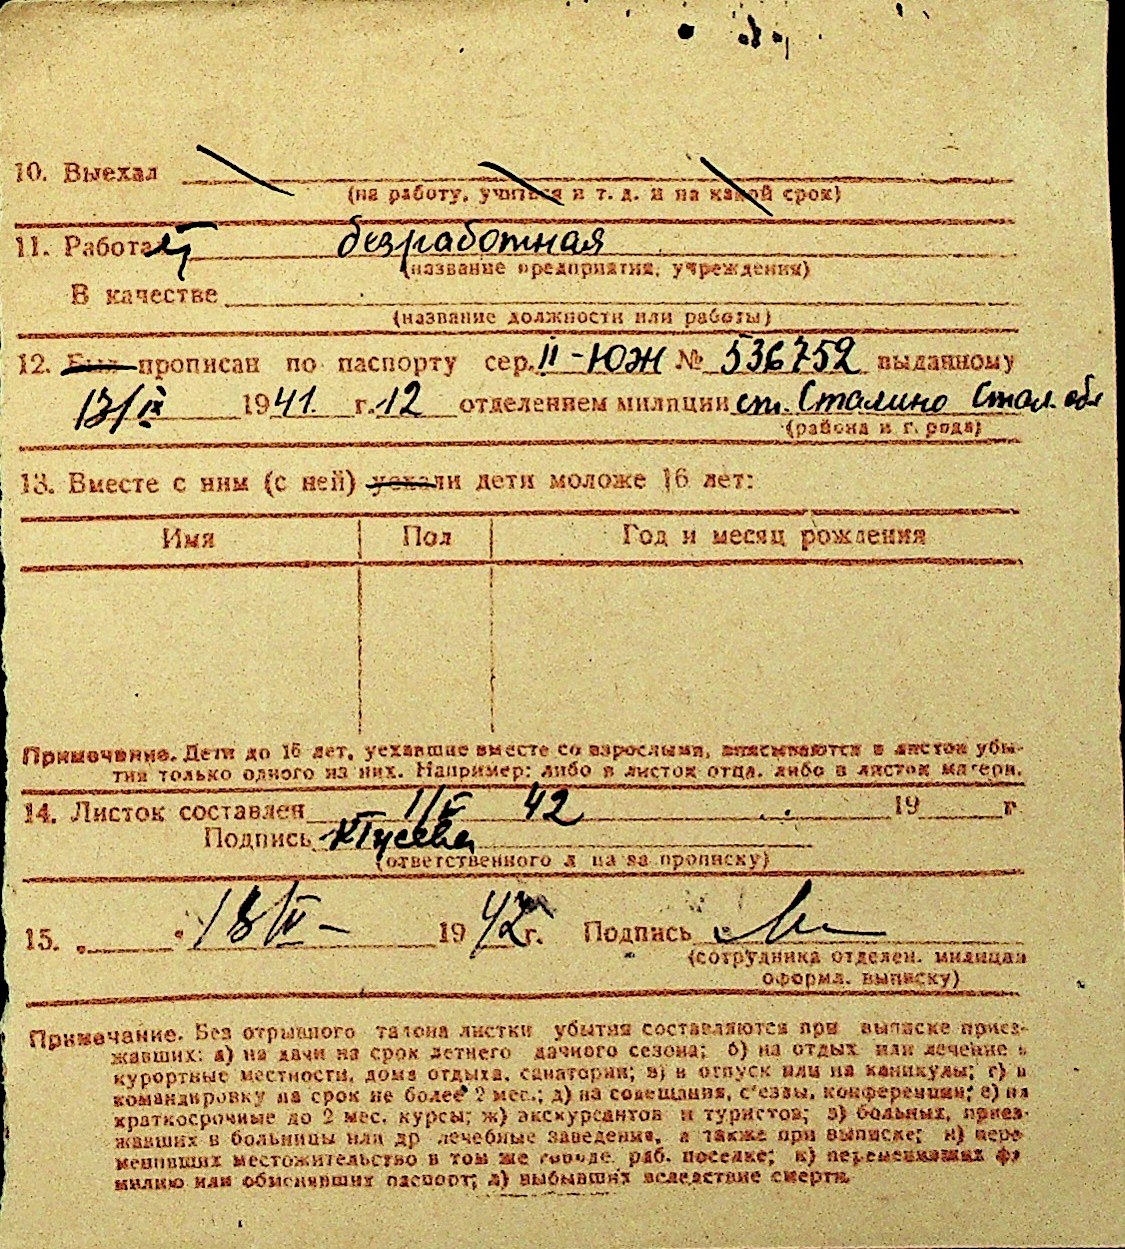 10. Выехал
(на работу, учиться и т. д. и на какой срок)
11. Работает безработная
(название предприятия, учреждения)
В качестве
(название должности или работы)
12. Был прописан по паспорту сер. II-ЮЖ № 536752 выданному
13/IX 1941. г. 12 отделением милиции ст. Сталино Стал. обл
(района и г. рода)
13. Вместе с ним (с ней) уехали дети моложе 16 лет:
Имя Пол Год и месяц рождения
Примечание. Дети до 16 лет, уехавшие вместе со взрослыми, вписываются в листок убы-
тия только одного из них. Например: либо в листок отца, либо в листок матери.
14. Листок составлен 1/V 42 19 г
Подпись
(ответственного л ца за прописку)
15. „ " 18/V - 1942 г. Подпись
(сотрудника отделен. милиции
оформл. выписку)
Примечание. Без отрывного талона листки убытия составляются при выписке приез-
жавших: а) на дачи на срок летнего дачного сезона; б) на отдых или лечение в
курортные местности, дома отдыха, санатории; в) в отпуск или на каникулы; г) в
командировку на срок не более 2 мес.; д) на совещания, с'езды, конференции; е) на
краткосрочные до 2 мес. курсы; ж) экскурсантов и туристов; з) больных, приез-
жавших в больницы или др лечебные заведения, а также при выписке; и) пере-
менивших местожительство в том же городе, раб. поселке; к) переменивших фа
милию или обменявших паспорт; л) выбывших вследствие смерти.